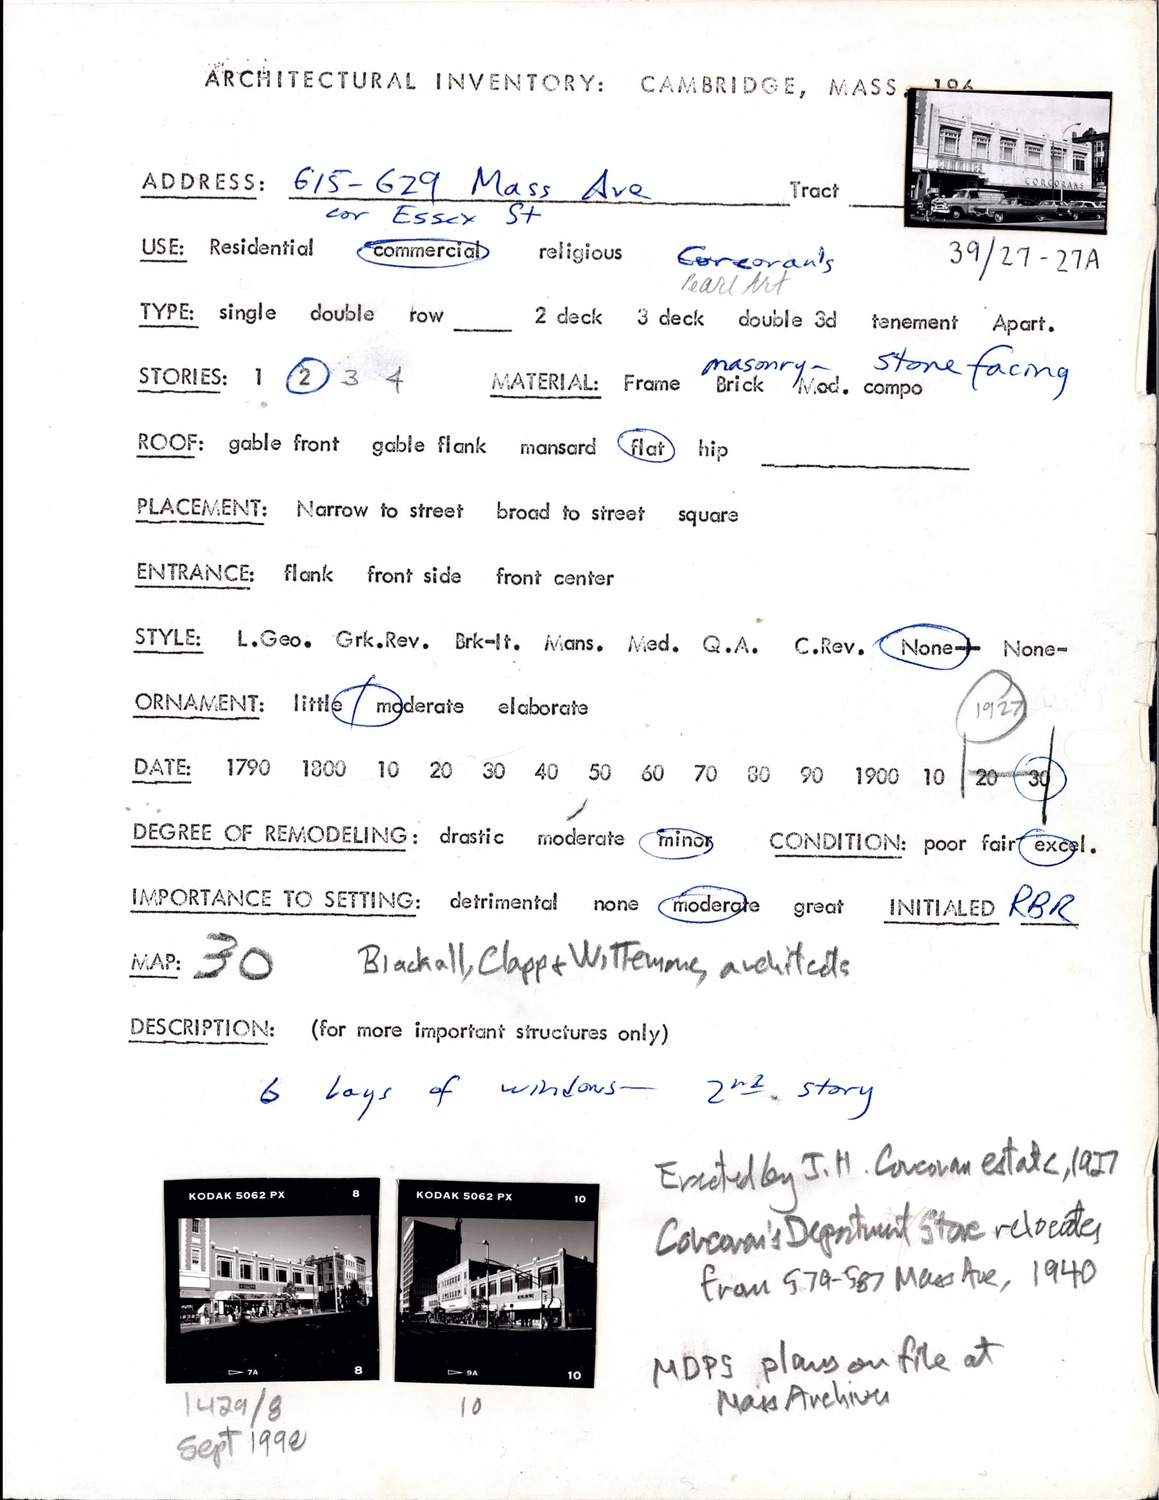 ARCHITECTURAL INVENTORY: CAMBRIDGE, MASS. 196
ADDRESS: 615-629 Mass Ave Tract
cor Essex St
CORCORANS
39/27-27A
USE: Residential commercial religious Corcoran's
Pearl Art
TYPE: single double row 2 deck 3 deck double 3d tenement Apart.
masonry- stone facing
STORIES: 1 2 3 4 MATERIAL: Frame Brick Mod. compo
ROOF: gable front gable flank mansard flat hip
PLACEMENT: Narrow to street broad to street square
ENTRANCE: flank front side front center
STYLE: L.Geo. Grk.Rev. Brk-It. Mans. Med. Q.A. C.Rev. None+ None-
ORNAMENT: little / moderate elaborate
1927
DATE: 1790 1800 10 20 30 40 50 60 70 80 90 1900 10 20 30
DEGREE OF REMODELING: drastic moderate minor CONDITION: poor fair excel.
IMPORTANCE TO SETTING: detrimental none moderate great INITIALED RBR
MAP: 30 Blackall, Clapp + Whittemore, architects
DESCRIPTION: (for more important structures only)
6 bays of windows— 2nd story
Erected by J.H. Corcoran estate, 1927
Corcoran's Department Store relocates
from 579-587 Mass Ave, 1940
MDPS plans on file at
Mass Archives
KODAK 5062 PX 8
7A 8
KODAK 5062 PX 10
9A 10
1429/8 10
Sept 1992